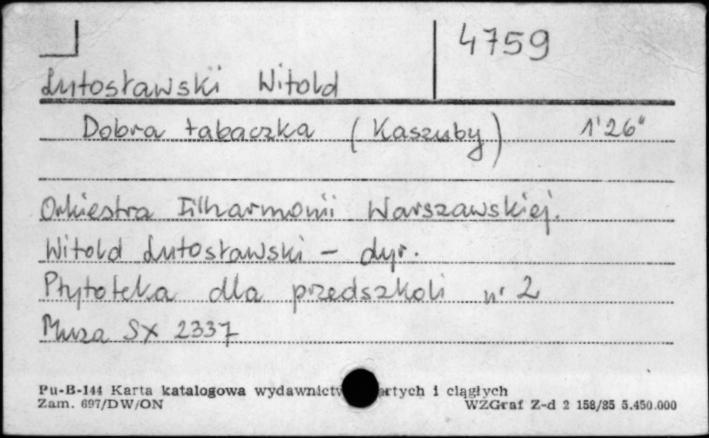 4759
Lutosławski Witold
Dobra tabaczka (Kaszuby) 1'26"
Orkiestra Filharmonii Warszawskiej.
Witold Lutosławski - dyr.
Płytoteka dla przedszkoli nr 2
Muza SX 2337
Pu-B-144 Karta katalogowa wydawnictw artych i ciągłych
Zam. 697/DW/ON WZGraf Z-d 2 158/85 5.450.000